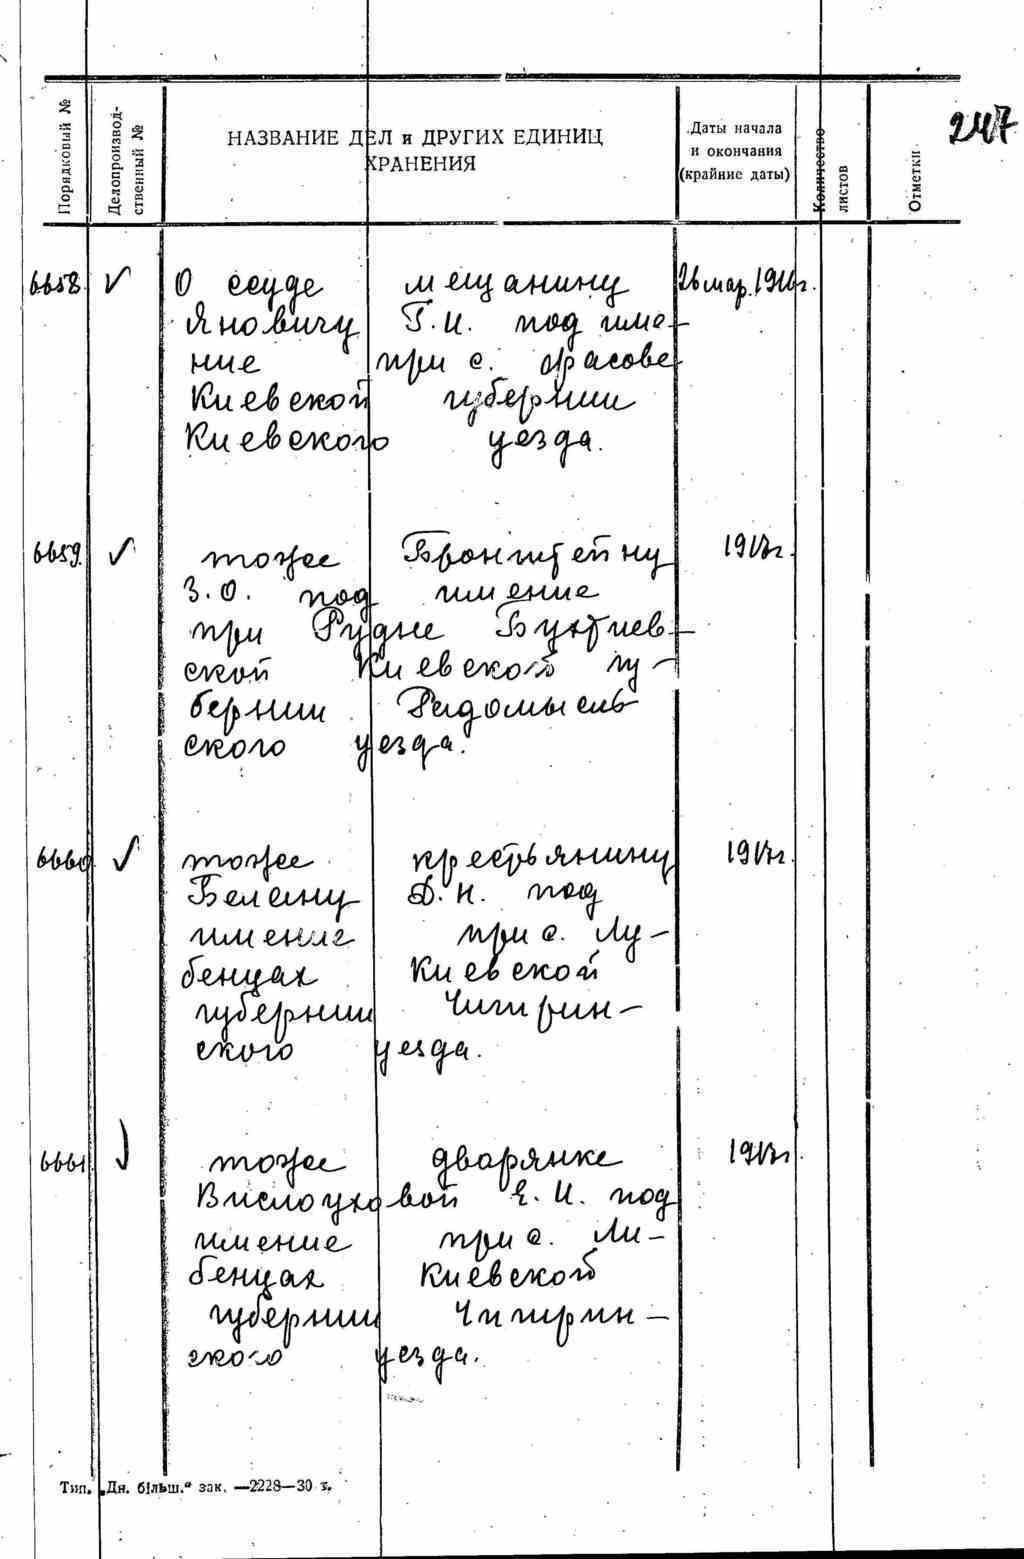 247
Порядковый №
Делопроизвод-
ственный №
НАЗВАНИЕ ДЕЛ и ДРУГИХ ЕДИНИЦ
ХРАНЕНИЯ
Даты начала
и окончания
(крайние даты)
Количество
листов
Отметки
6658 √ О ссуде мещанину 26 мар. 1916г.
Яновичу Г.И. под име-
ние при с. Красове
Киевской губернии
Киевского уезда.
6659. √ тоже Бронштейну 1917г.
З.О. под имение
при Рудне Бухтиев-
ской Киевской гу-
бернии Радомысль
ского уезда.
6660 √ тоже крестьянину 1917г.
Белему Д.Н. под
имение при с. Лу-
бенцах Киевской
губернии Чигирин-
ского уезда.
6661 √ тоже дворянке 1917г.
Вислоуховой Е.И. под
имение при с. Лу-
бенцах Киевской
губернии Чигирин-
ского уезда.
Тип. „Дн. більш.“ зак. —2228—30 т.